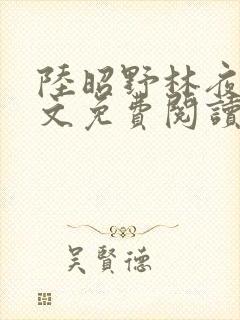 陸昭野林夜
文免費閱讀
吳賢德